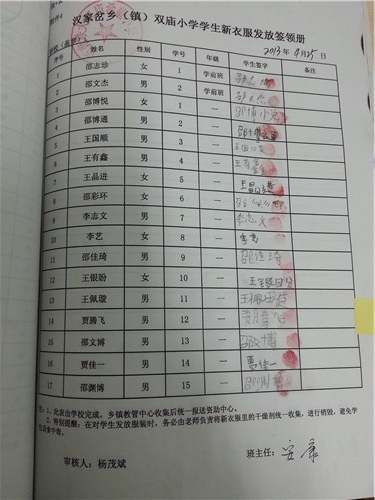 汉家岔乡（镇）双庙小学学生新衣服发放签领册
2013年4月25日
序号 姓名 性别 学号 年级 学生签字 备注
1 邵志珍 女 1 学前班
2 邵文杰 男 2 学前班 邵文杰
3 邵博悦 女 1 一
4 邵博通 男 2 一
5 王国顺 男 3 一 王国顺
6 王有鑫 男 4 一 王有鑫
7 王晶进 女 5 一 王晶进
8 邵彩环 女 6 一
9 李志文 男 7 一 李志文
10 李艺 女 8 一 李艺
11 邵佳琦 男 9 一 邵佳琦
12 王银盼 女 10 一 王银盼
13 王佩璇 男 11 一 王佩璇
14 贾腾飞 男 12 一
15 邵文博 男 13 一 邵文博
16 贾佳一 男 14 一 贾佳一
17 邵渊博 男 15 一 邵渊博
注：1、此表由学校完成，乡镇教管中心收集后统一报送资助中心。
2、特别提醒：在对学生发放服装时，务必由老师负责将新衣服里的干燥剂统一收集，进行销毁，避免学生误食中毒。
审核人：杨茂斌
班主任：安康